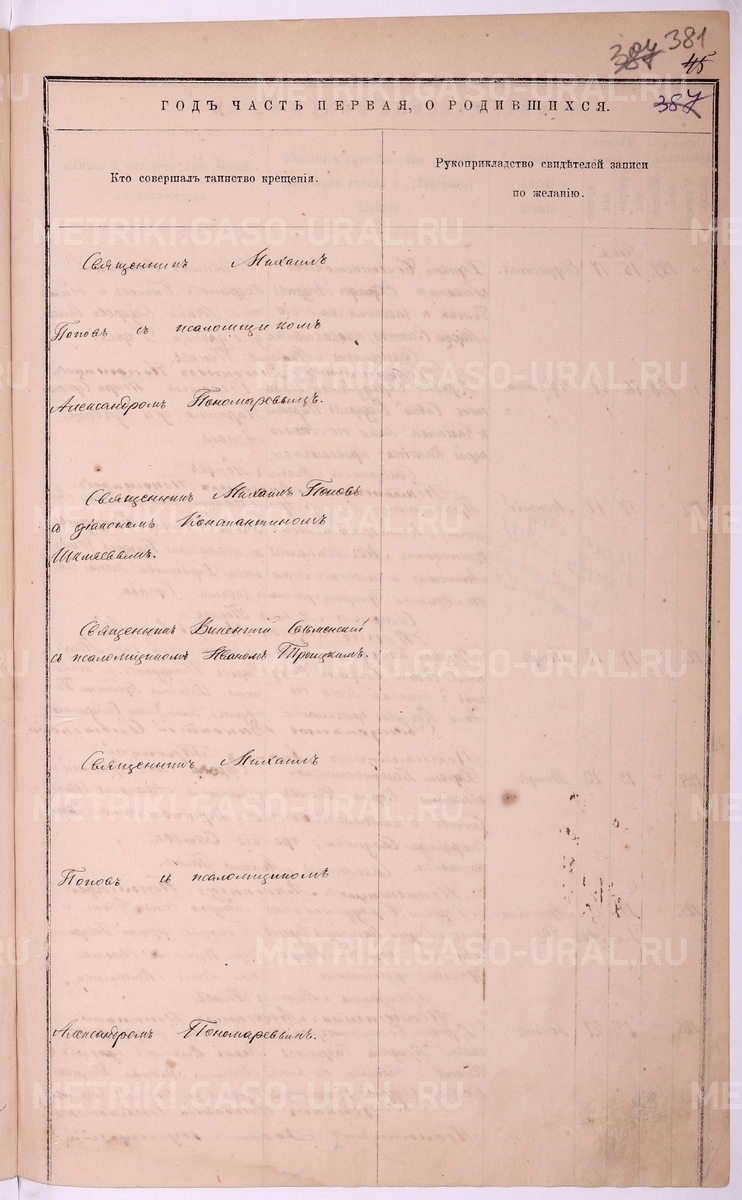 387 381
45
ГОДЪ ЧАСТЬ ПЕРВАЯ, О РОДИВШИХСЯ.
387
Кто совершалъ таинство крещенія.
Рукоприкладство свидѣтелей записи
по желанію.
METRIKI.GASO-URAL.RU
Священникъ Михаилъ
Поповъ съ псаломщикомъ
Александромъ Пономаревымъ.
Священникъ Михаилъ Поповъ
съ діакономъ Константиномъ
Священникъ
съ псаломщикомъ Иваномъ Троицкимъ.
Священникъ Михаилъ
Поповъ съ псаломщикомъ
Александромъ Пономаревымъ.